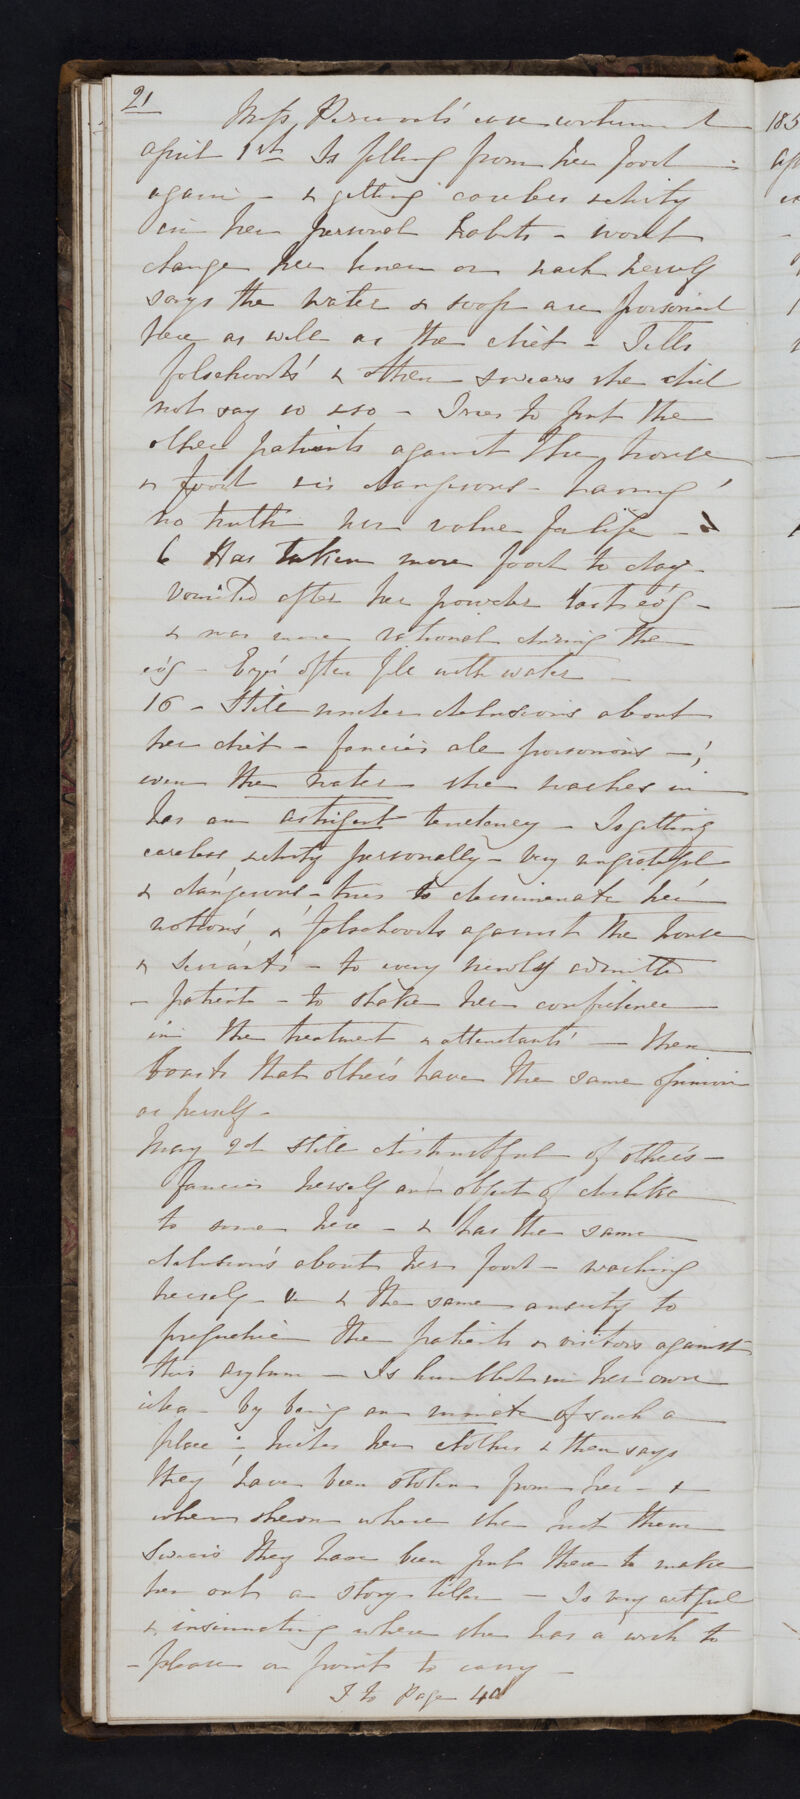 21
case continued
April 1st Is falling from her food
again - & getting careless & dirty
in her personal habits - wont
change her linen or wash herself
says the water & soap are poisoned
here as well as the diet - Tells
falsehoods & then swears she did
not say so & so - Tries to put the
other patients against the house
& food & is dangerous - having
no truth nor value for life - &
6 Has taken more food to day -
vomited after her powder last evg -
& was more rational during the
evg - Eyes often fill with water -
16 - Still under delusions about
her diet - fancies ale poisonous - ;
even the water she washes in
has an astrigent tendency - Is getting
careless & dirty personally - very ungrateful
& dangerous - tries to disseminate her
notions & falsehoods against the house
& servants - to every newly admitted
- patient - to shake her confidence
in the treatment & attendants - then
boasts that others have the same opinion
as herself -
May 2d still distrustful of others -
fancies herself an object of dislike
to some here - & has the same
delusions about her food - washing
herself - & the same anxiety to
prejudice the patients & visitors against
this asylum - Is humbled in her own
idea - by being an inmate of such a
place - hides her clothes & then says
they have been stolen from her - &
when shewn where she put them
swears they have been put there to make
her out a story teller - Is very artful
& insinuating where she has a wish to
- please or point to carry -
T to Page 40
185